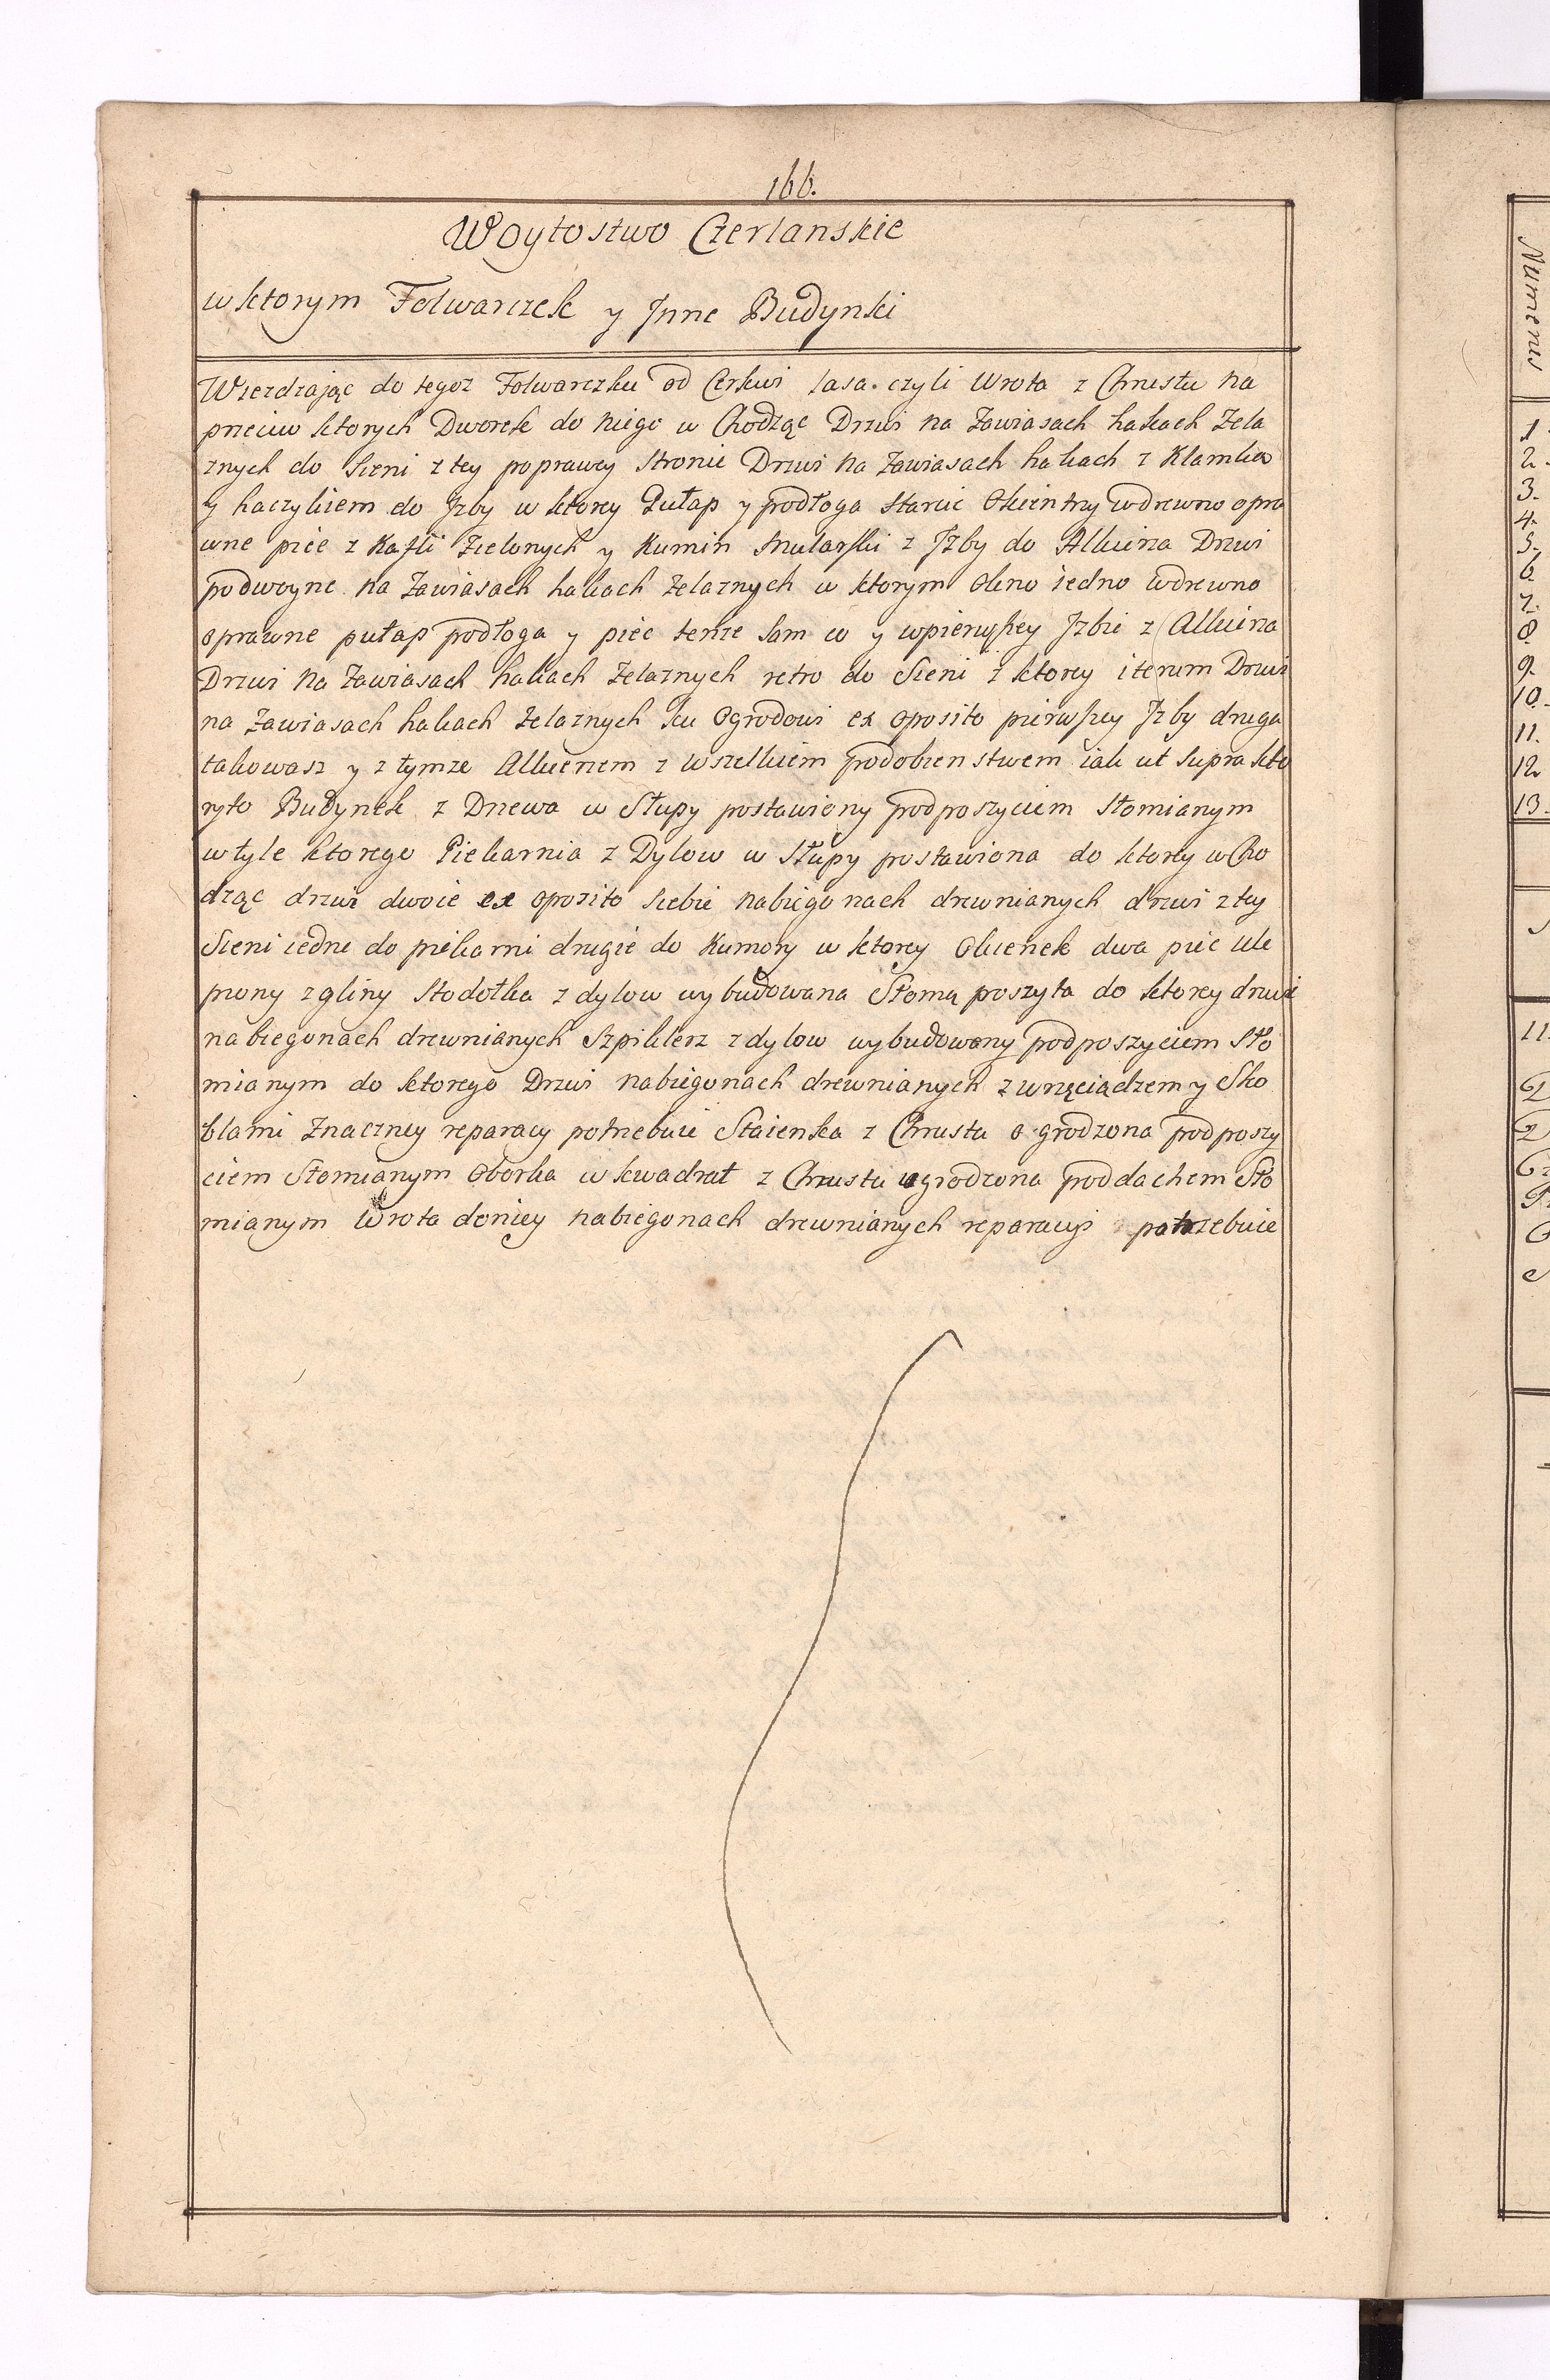 166.
Woytostwo Czerlanskie
w ktorym Folwarczek y Jnne Budynki
Wiezdzaiąc do tegoz Folwarczku od Cerkwi lasa. czyli Wrota z Chrustu na
przeciw ktorych Dworek do niego w Chodząc Drzwi na Zawiasach hakach Zela
znych do Sieni z tey poprawey stronie Drzwi na Zawiasach hakach z Klamko
y haczykiem do Jzby w ktorey Pułap y podłoga starcic Okientny wdrewno opra
wne piec z Kafli Zielonych y Kumin Mularski z Jzby do Alkierza Drzwi
podwoyne na Zawiasach hakach Zelaznych w ktorym Okno iedno wdrewno
oprawne pułap podłoga y piec tenze sam co y wpierwszey Jzbie z Alkierza
Drzwi na Zawiasach hakach Zelaznych retro do Sieni z ktorey iterum Drzwi
na Zawiasach hakach Zelaznych ku Ogrodowi ex oposito pierwszey Jzby druga
takowasz y z tymze Alkierzem z wszelkiem podobienstwem iak ut supra kto
ryto Budynek z Drzewa w Słupy postawiony podposzyciem Słomianym
wtyle ktorego Piekarnia z Dylow w Słupy postawiona do ktorey wCho
dząc drzwi dwoie ex oposito siebie nabiegonach drewnianych drzwi z tey
Sieni iedne do piekarni drugie do Kumory w ktorey Okienek dwa piec ule
piony z gliny Stodołka z dylow wybudowana Słomą poszyta do ktorey drzwi
nabiegonach drewnianych Szpiklerz z dylow wybudowany podposzyciem Sło
mianym do ktorego Drzwi nabiegonach drewnianych zwrzeciądzem y Sko
blami Znaczney reparacy potrzebuie Staienka z Chrustu ogrodzona podposzy
ciem Słomianym Oborka w kwadrat z Chrustu ogrodzona poddachem Sło
mianym Wrota doniey nabiegonach drewnianych reparacyi potrzebuie
Numerus
1.
2.
3.
4.
5.
6.
7.
8.
9.
10.
11.
12
13.
11.